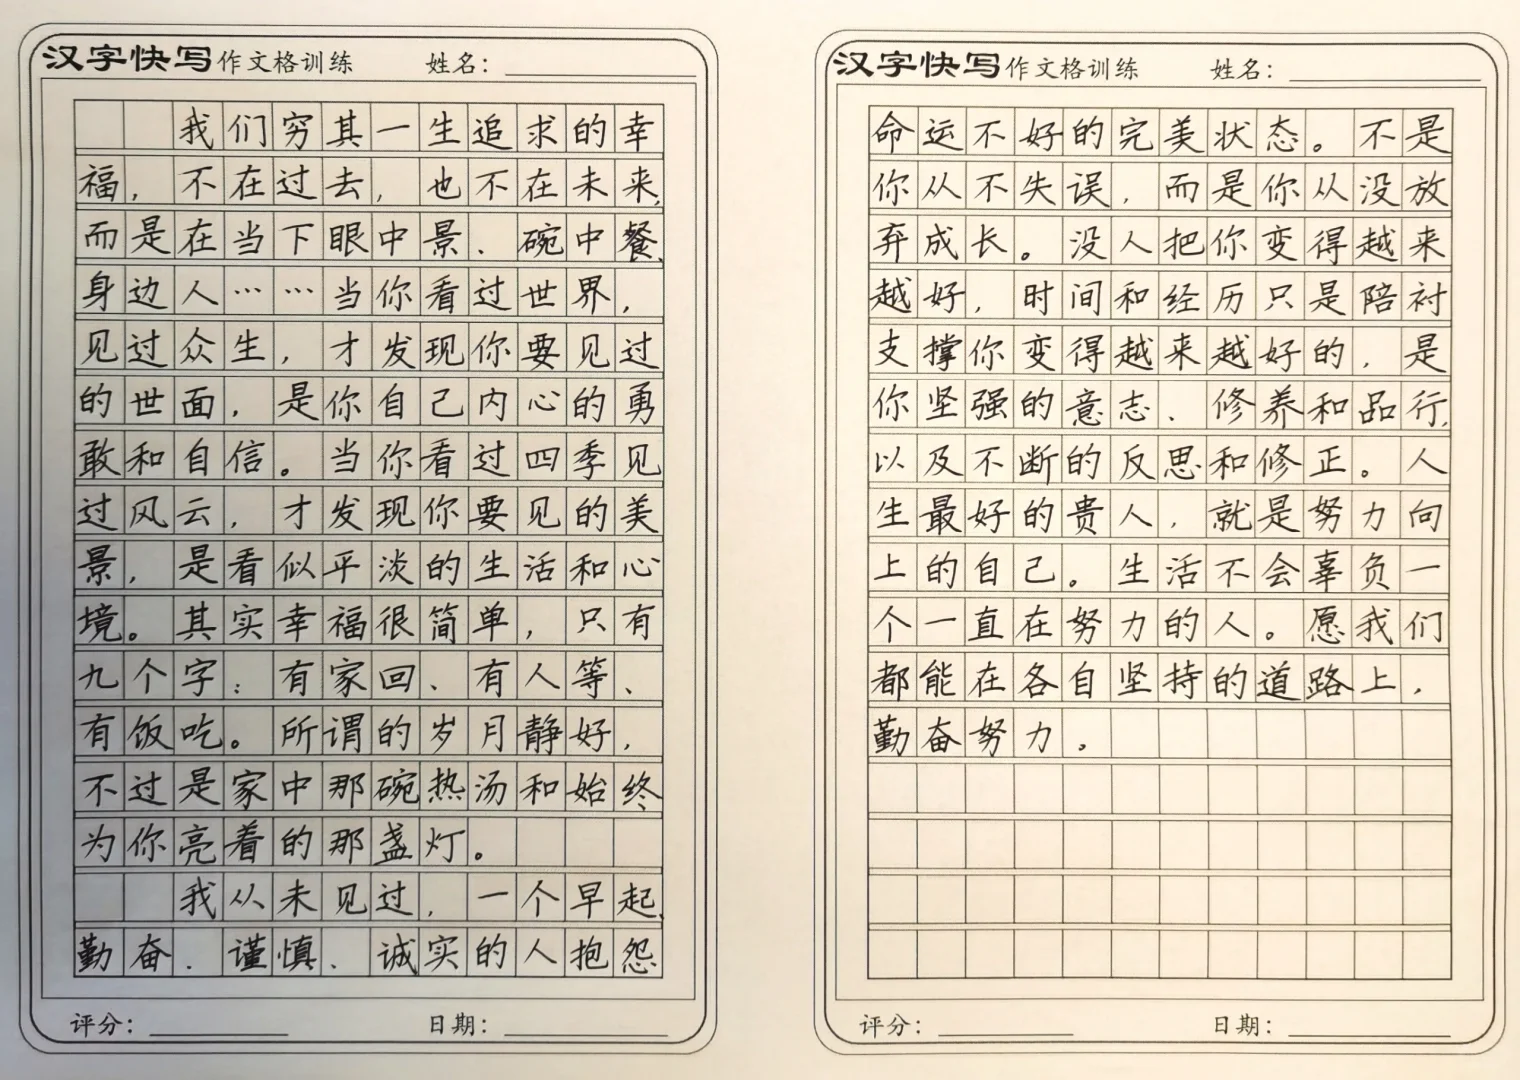 汉字快写作文格训练 姓名：
我们穷其一生追求的幸
福，不在过去，也不在未来，
而是在当下眼中景、碗中餐、
身边人……当你看过世界，
见过众生，才发现你要见过
的世面，是你自己内心的勇
敢和自信。当你看过四季见
过风云，才发现你要见的美
景，是看似平淡的生活和心
境。其实幸福很简单，只有
九个字：有家回、有人等、
有饭吃。所谓的岁月静好，
不过是家中那碗热汤和始终
为你亮着的那盏灯。
我从未见过，一个早起、
勤奋、谨慎、诚实的人抱怨
评分： 日期：
汉字快写作文格训练 姓名：
命运不好的完美状态。不是
你从不失误，而是你从没放
弃成长。没人把你变得越来
越好，时间和经历只是陪衬
支撑你变得越来越好的，是
你坚强的意志、修养和品行，
以及不断的反思和修正。人
生最好的贵人，就是努力向
上的自己。生活不会辜负一
个一直在努力的人。愿我们
都能在各自坚持的道路上，
勤奋努力。
评分： 日期：